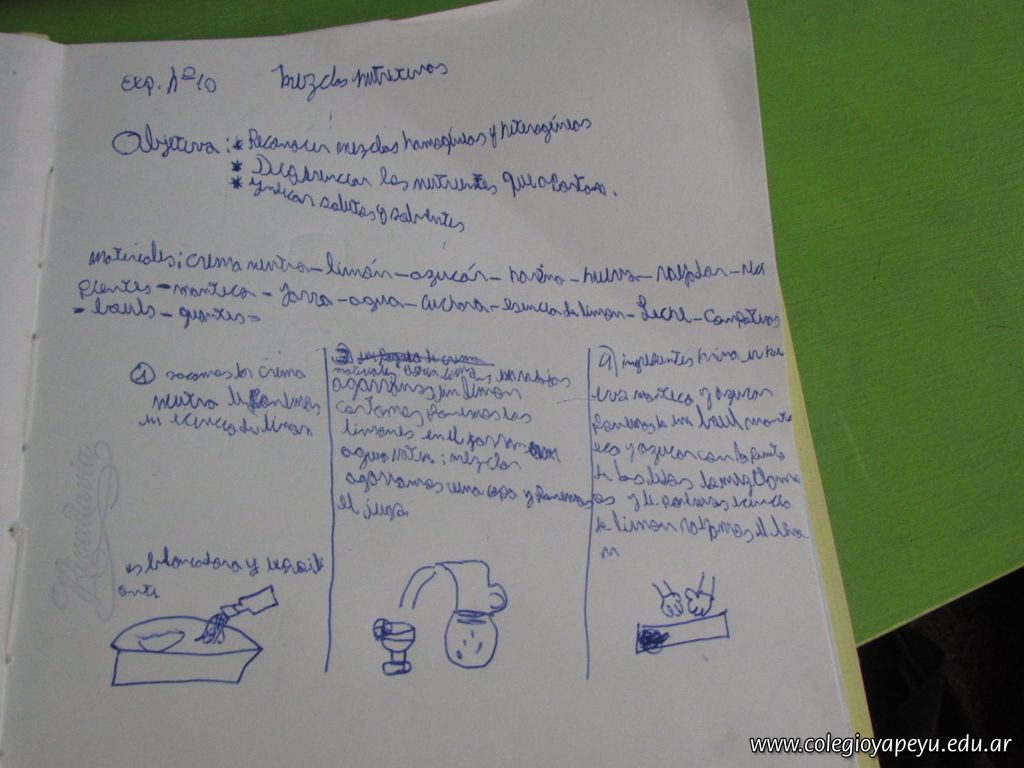 exp. Nº 10 mezclas nutritivas
Objetivo: * Reconocer mezclas homogéneas y heterogéneas
* Diferenciar los nutrientes que aportan.
* indicar solutos y solventes
materiales: crema neutra - limón - azucár - harina - huevo - rallador - reci
pientes - manteca - jarra - agua - cuchara - esencia de limon - Leche - compoteras
- bowls - guantes -
① sacamos la crema
neutra le ponemos
esencia de limon
es blancadora y
② 
materiales agua
agarramos un limon
cortamos ponemos los
limones en el jarra
agua mezclar
agarramos una copa y ponemos
el jugo.
4) ingredientes harina
manteca y azucar
ponemos en un bowl mante
ca y azucar con la punta
de los dedos la
y le ponemos esencia
de limon rallamos el limo
n
Rivadavia
www.colegioyapeyu.edu.ar